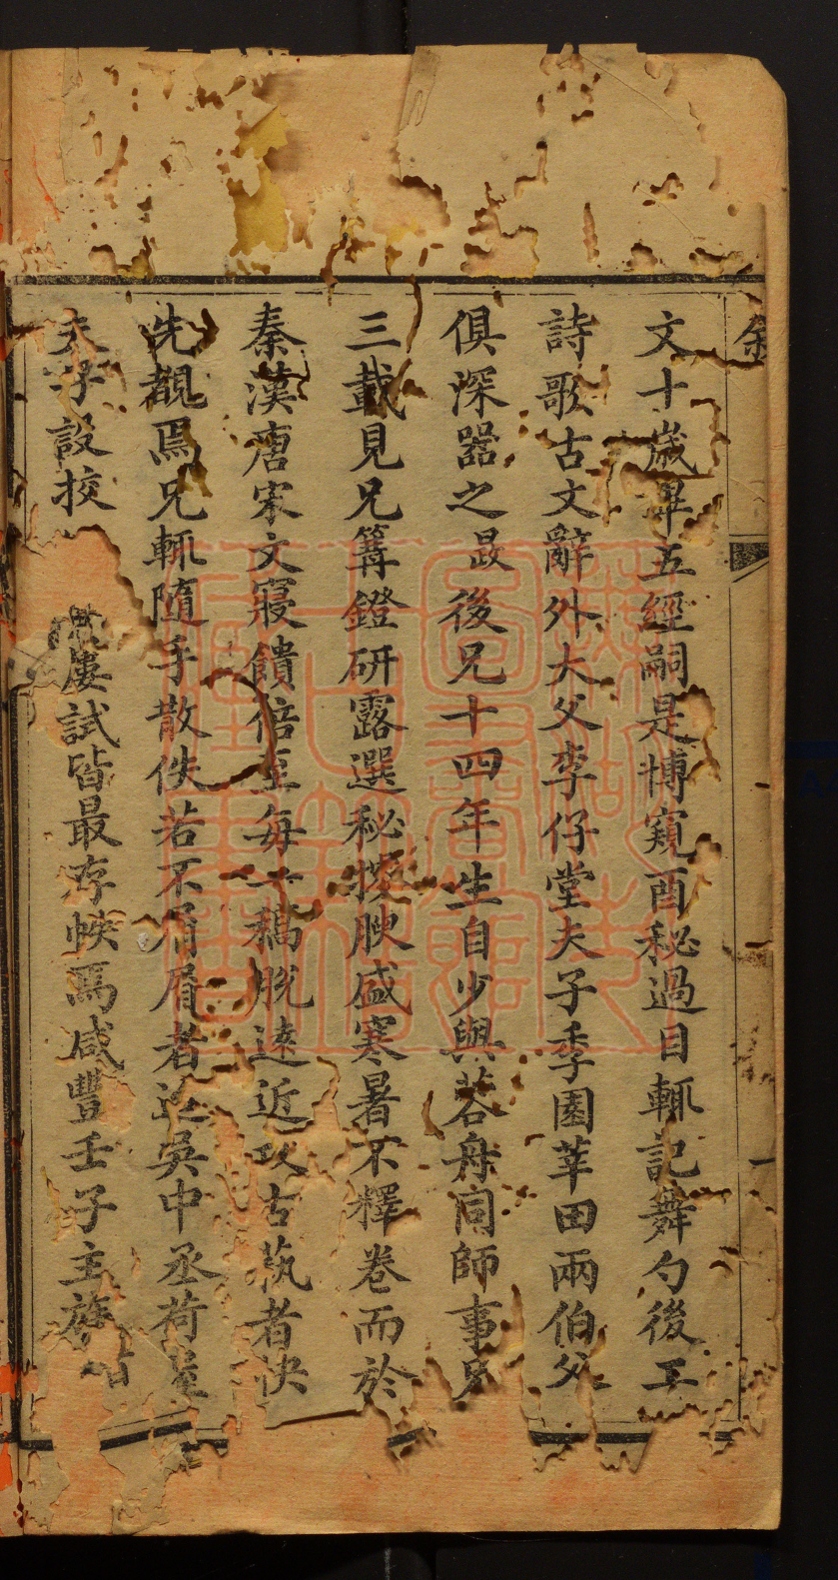 文十歲畢五經嗣是博窺酉秘過目輒記舞勺後工
詩歌古文辭外大父李仔堂夫子季園莘田兩伯父
俱深器之晸後兄十四年生自少與若舟同師事兄
三載見兄篝鐙研露選秘搜腴盛寒暑不釋卷而於
秦漢唐宋文寢饋倍至每一稿脫遠近攻古執者快
先覩焉兄輒隨手散佚若不屑屑者迨吳中丞荷
夫子設挍屢試皆最存帙焉咸豐壬子主